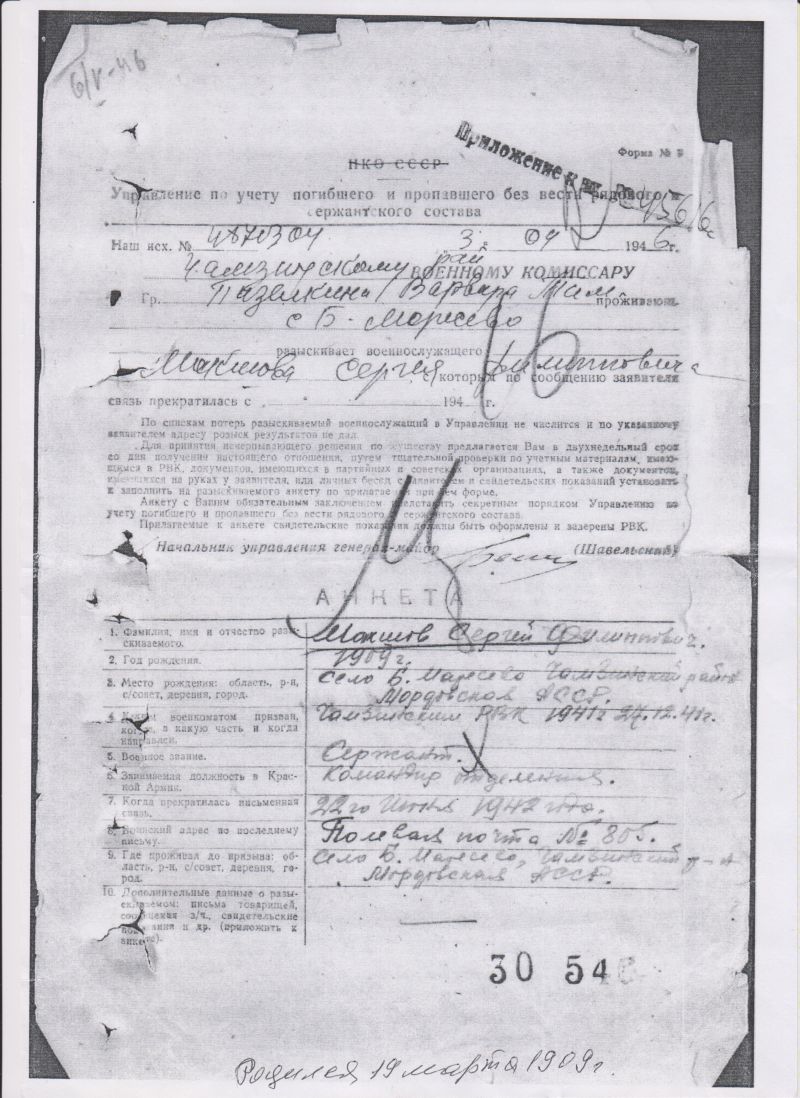 6/V-46
НКО СССР
Приложение к вх. №
Форма №
45616с
Управление по учету погибшего и пропавшего без вести рядового и
сержантского состава
Наш исх. № 3. 04 1946г.
Чамзинскому рай ВОЕННОМУ КОМИССАРУ
Гр. Пазелкина Варвара Мак проживающ.
с Б-Маресево
разыскивает военнослужащего
Макшова Сергея Филипповича
с которым по сообщению заявителя
связь прекратилась с 194 г.
По спискам потерь разыскиваемый военнослужащий в Управлении не числится и по указанному
заявителем адресу розыск результатов не дал.
Для принятия исчерпывающего решения по существу предлагается Вам в двухнедельный срок
со дня получения настоящего отношения, путем тщательной проверки по учетным материалам, имею-
щимся в РВК, документов, имеющихся в партийных и советск. организациях, а также документов,
имеющихся на руках у заявителя, или личных бесед с заявителем и свидетельских показаний установить
и заполнить на разыскиваемого анкету по прилагаемой при сем форме.
Анкету с Вашим обязательным заключением представить секретным порядком Управлению по
учету погибшего и пропавшего без вести рядового и сержантского состава.
Прилагаемые к анкете свидетельские показания должны быть оформлены и заверены РВК.
Начальник управления генерал-майор (Шавельский)
АНКЕТА
1. Фамилия, имя и отчество разы-
скиваемого.
Макшов Сергей Филиппович.
2. Год рождения.
1909 г.
3. Место рождения: область, р-н,
с/совет, деревня, город.
Село Б. Маресево Чамзинский район
Мордовская АССР.
4. Каким военкоматом призван,
когда, в какую часть и когда
направлен.
Чамзинским РВК 1941г 27.12.41г.
5. Военное звание.
Сержант.
6. Занимаемая должность в Крас-
ной Армии.
Командир отделения.
7. Когда прекратилась письменная
связь.
22го Июня 1942 года.
8. Воинский адрес по последнему
письму.
Полевая почта № 805.
9. Где проживал до призыва: об-
ласть, р-н, с/совет, деревня, го-
род.
Село Б. Маресево, Чамзинский р-н
Мордовская АССР.
10. Дополнительные данные о разы-
скиваемом: письма товарищей,
сообщения в/ч., свидетельские
показания и др. (приложить к
анкете).
30 546
Родился 19 марта 1909 г.